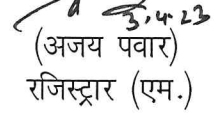 3.4.23
(अजय पवार)
रजिस्ट्रार (एम.)